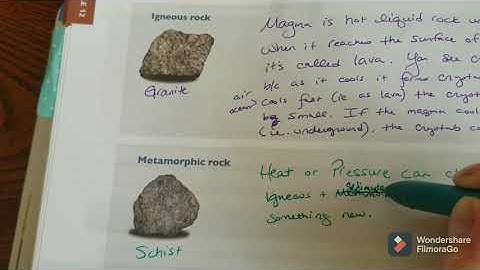 E 12
Igneous rock
Granite
Magma is hot liquid rock
when it reaches the surface of
it's called lava. You see
b/c as it cools it forms
air
ocean
cools fast (ie as lava) the
be small. If the magma
(i.e. underground), the crystals
Metamorphic rock
Schist
Heat or Pressure can
Igneous +
something new.
Wondershare
FilmoraGo